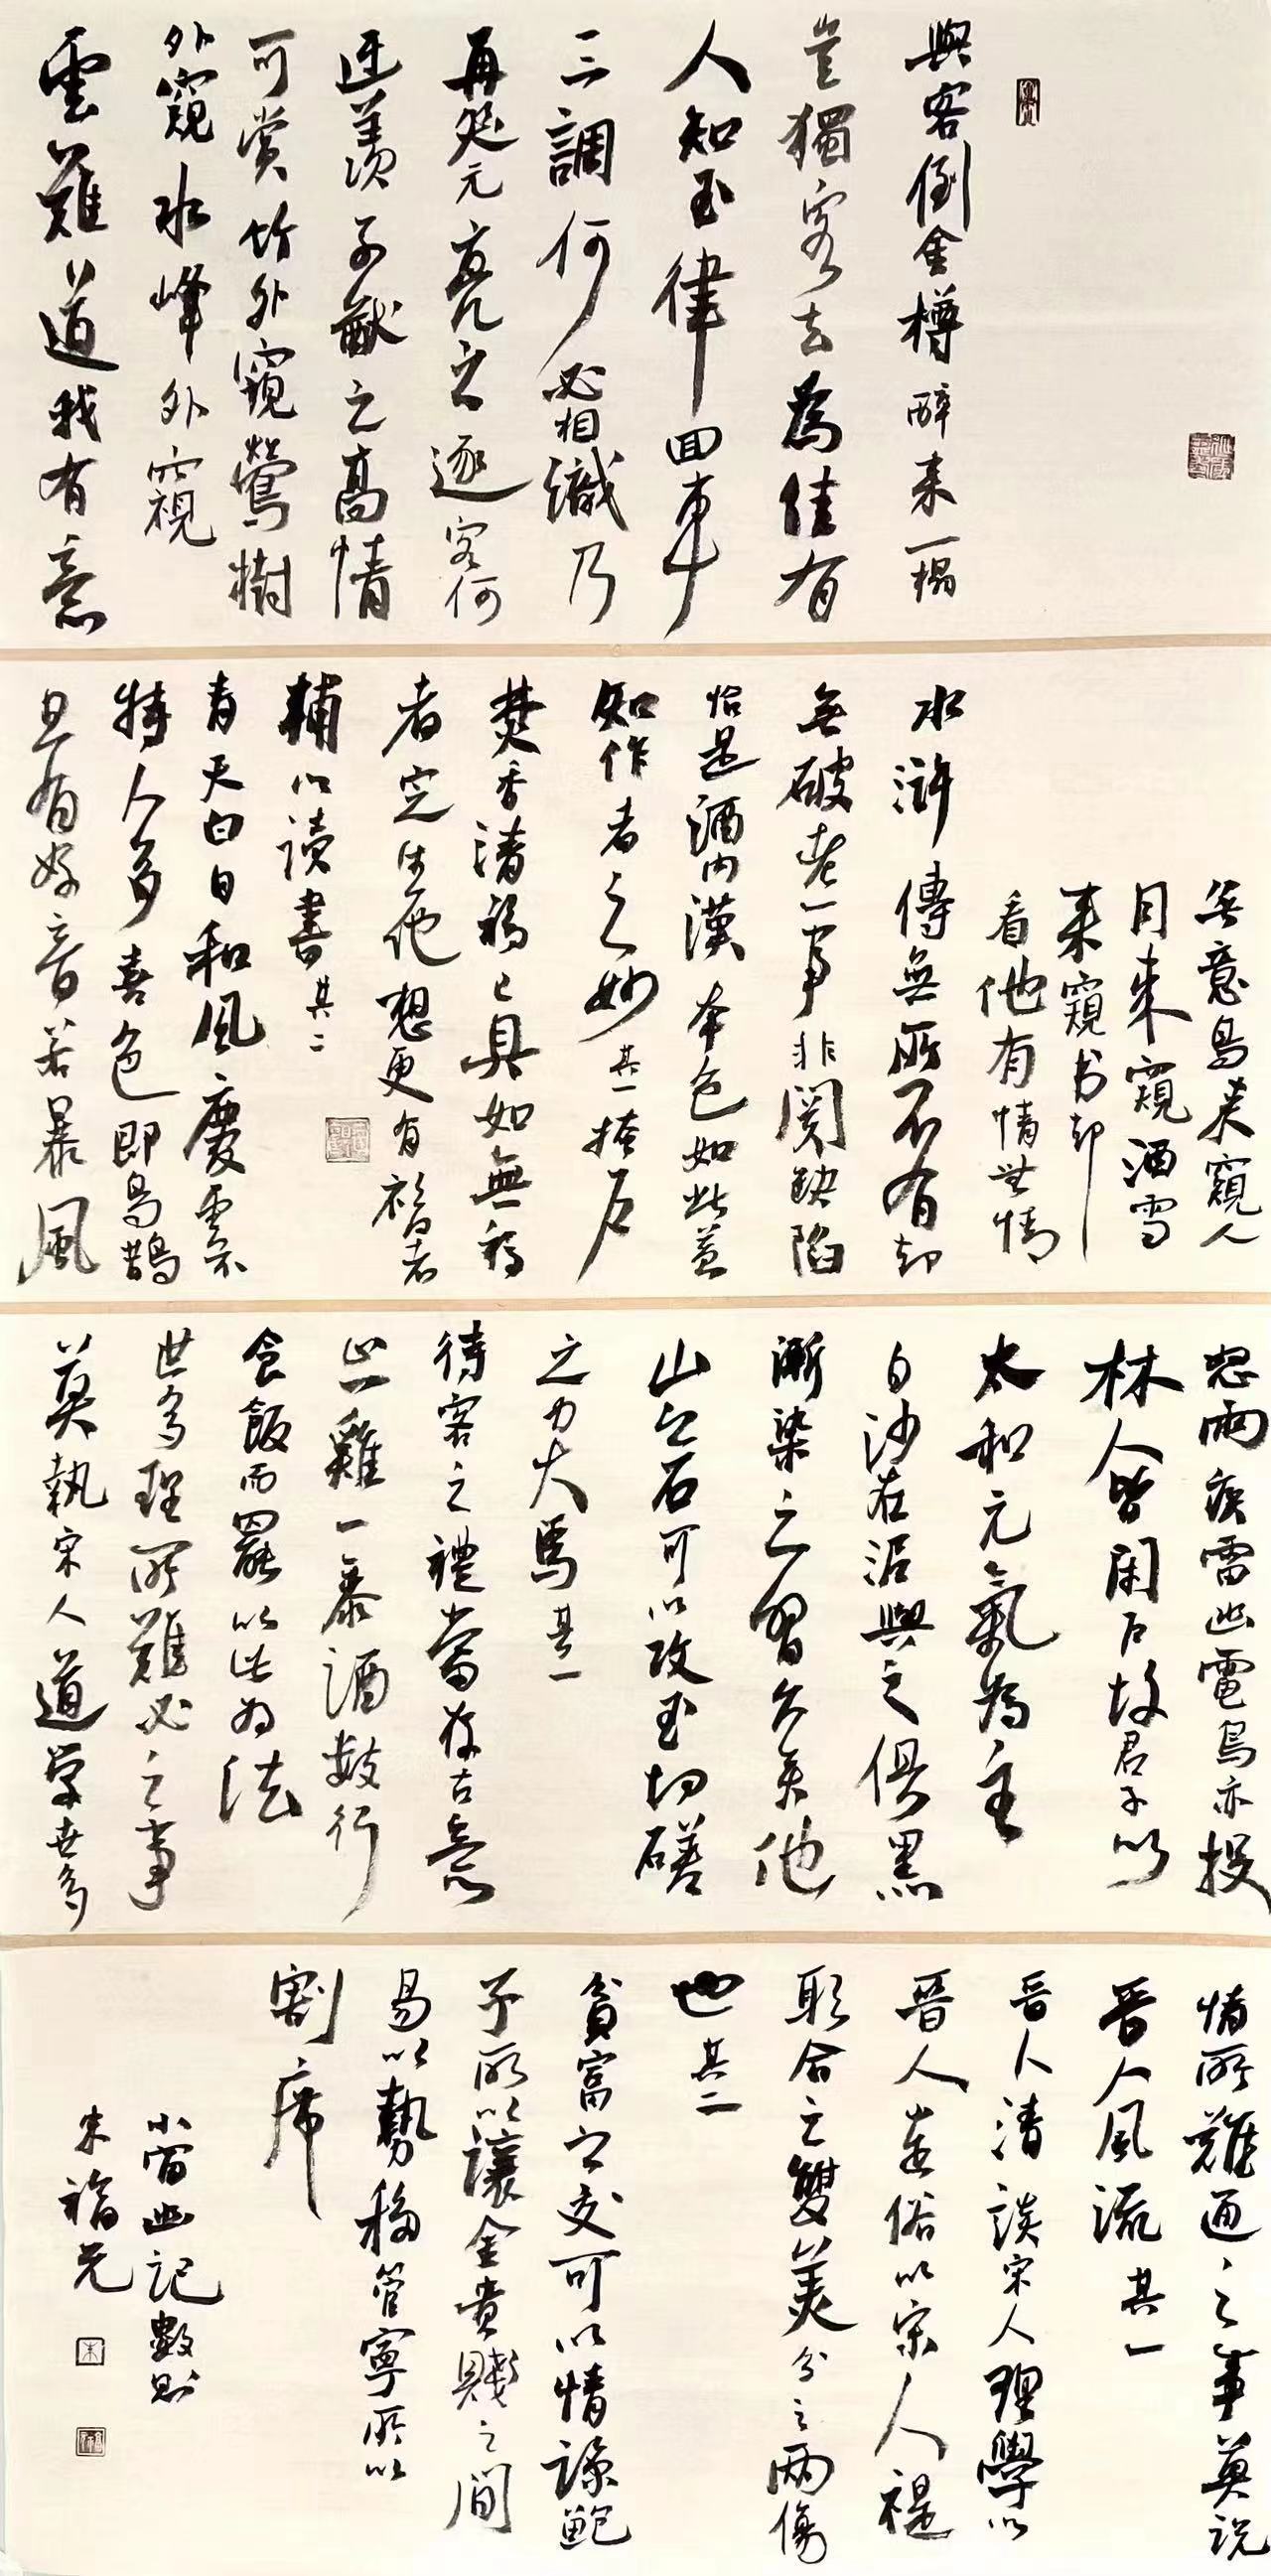 與客倒金樽醉來一榻
豈獨客去為佳有
人知玉律回車
三調何必相識乃
再延元亮之逐客何
迂羨子猷之高情
可賞竹外窺鶯樹
外窺水峰外窺
雲難道我有意
無意鳥來窺人
月來窺酒雪
來窺书却
看他有情無情
水滸傳無所不有却
無破老一事非関缺陷
恰是酒肉漢本色如此益
知作者之妙其一掩户
焚香清福已具如無福
者定生他想更有福者
輔以讀書其二
青天白日和風慶雲不
特人多喜色即鳥鵲
且有好音若暴風
怒雨疾雷幽電鳥亦投
林人皆閉户故君子以
太和元氣為主
白沙在泥與之俱黑
漸染之習久矣他
山之石可以攻玉切磋
之力大焉其一
待客之禮當存古意
止一雞一黍酒數行
食飯而罷以此为法
世多理所難必之事
莫執宋人道学世多
情所難通之事莫説
晉人風流其一
晉人清談宋人理學以
晉人遠俗以宋人禔
躬合之雙美分之兩傷
也其二
貧富之交可以情諒鮑
子所以讓金貴賤之間
易以勢移管寧所以
割席
小窗幽記數則
朱福元